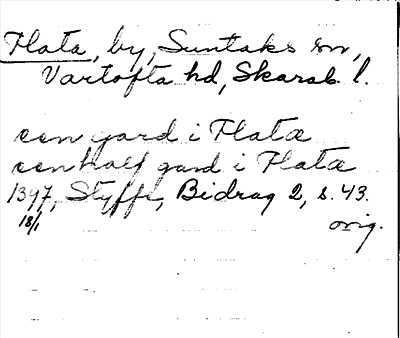 Flata, by, Suntaks sn,
Vartofta hd, Skarab. l.
een gard i Flatæ
een half gard i Flatæ
1397, Styffe, Bidrag 2, s. 43.
18/1 orig.